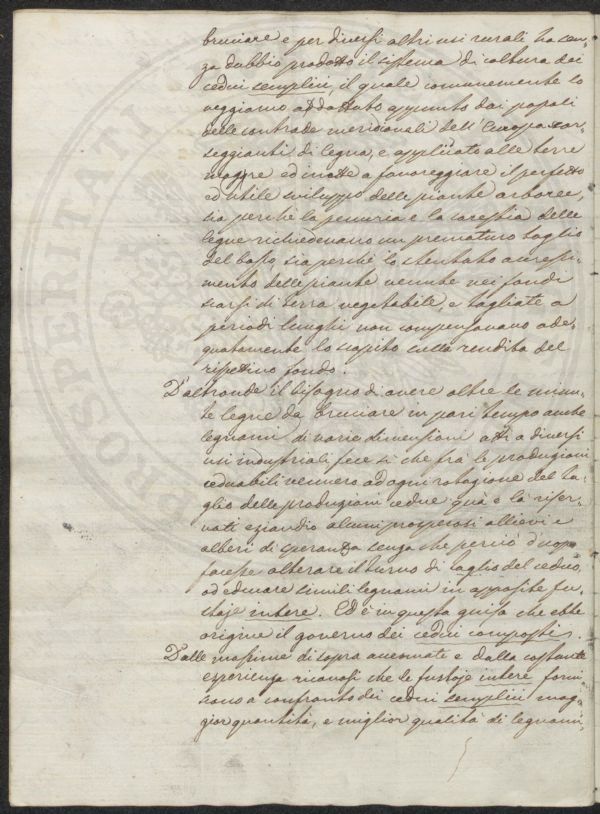 bruciare e per diversi altri usi rurali ha sen-
za dubbio prodotto il sistema di coltura dei
cedui semplici, il quale comunemente lo
veggiamo addottato appunto dai popoli
delle contrade meridionali dell'Europa scar-
seggianti di legna, e applicato alle terre
magre ed inette a favoreggiare il perfetto
ed utile sviluppo delle piante arboree,
sia perchè la penuria e la carestia delle
legne richiedevano un prematuro taglio
del bosco, sia perchè lo stentato accresci-
mento delle piante venute nei fondi
scarsi di terra vegetabile, e tagliate a
periodi lunghi non compensavano ade-
quatamente lo scapito sulla rendita del
rispettivo fondo.
D'altronde il bisogno di avere oltre le minu-
te legne da bruciare in pari tempo anche
legnami di varie dimensioni atti a diversi
usi industriali fece sì che frà le produzioni
ceduabili vennero ad ogni rotazione del ta-
glio delle produzioni cedue quà e là riser-
vati eziandio alcuni prosperosi allievi e
alberi di speranza senza che perciò d'uopo
facesse alterare il turno di taglio del ceduo,
od educare simili legnami in apposite fu-
staje intere. Ed è in questa guisa che ebbe
origine il governo dei cedui composti.
Dalle massime di sopra accennate e dalla costante
esperienza ricavasi che le fustaje intere forni-
scono a confronto dei cedui semplici mag-
gior quantità, e miglior qualità di legnami,
PROSPERITATI